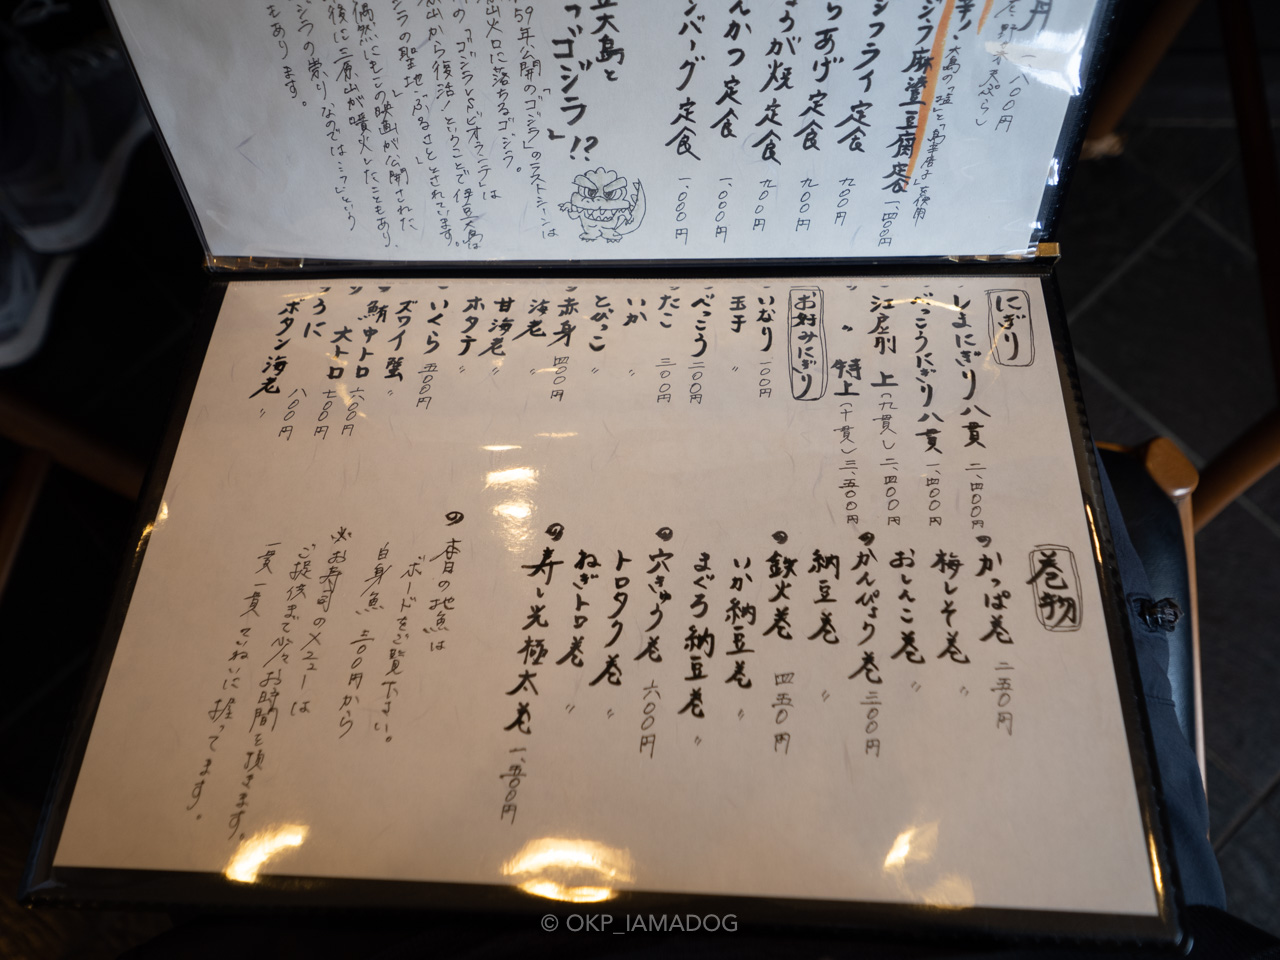 大島の「塩」と「島辛唐子」を使用
ジラ麻婆豆腐定食 一、四〇〇円
ジフライ定食 九〇〇円
りあげ定食 九〇〇円
ょうが焼定食 九〇〇円
んかつ定食 一、〇〇〇円
ンバーグ定食 一、〇〇〇円
豆大島と
「ゴジラ」!?
59年公開の「ゴジラ」のラストシーンは
原山火口に落ちるゴジラ。
の「ゴジラVSビオランテ」は
原山から復活!ということで伊豆大島は
ジラの聖地「ふるさと」とされています。
偶然にもこの映画が公開された
後に三原山が噴火したこともあり、
ジラの祟りなのでは…っという
もあります。
にぎり
しまにぎり八貫 二、四〇〇円
べっこうにぎり八貫 一、四〇〇円
江戸前 上(九貫) 二、四〇〇円
〃 特上(十貫) 三、五〇〇円
お好みにぎり
いなり 一〇〇円
玉子 〃
べっこう 二〇〇円
たこ 三〇〇円
いか 〃
とびっこ 〃
赤身 四〇〇円
海老 〃
甘海老 〃
ホタテ 〃
いくら 五〇〇円
ズワイ蟹 〃
鮪 中トロ 六〇〇円
大トロ 七〇〇円
うに 八〇〇円
ボタン海老 〃
巻物
かっぱ巻 二五〇円
梅しそ巻 〃
おしんこ巻 〃
かんぴょう巻 三〇〇円
納豆巻 〃
鉄火巻 四五〇円
いか納豆巻 〃
まぐろ納豆巻 〃
穴きゅう巻 六〇〇円
トロタク巻 〃
ねぎトロ巻 〃
寿し光極太巻 一、五〇〇円
本日の地魚は
ボードをご覧下さい。
白身魚 三〇〇円から
※お寿司のメニューは
ご提供まで少々お時間を頂きます。
一貫一貫ていねいに握ってます。
© OKP_IAMADOG